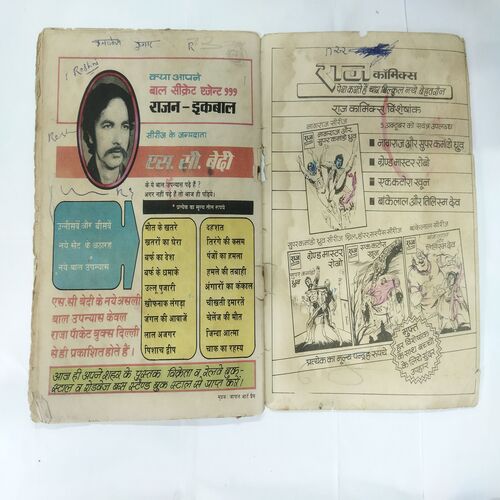 क्या आपने
बाल सीक्रेट एजेन्ट 999
राजन - इकबाल
सीरीज के जन्मदाता
एस. सी. बेदी
के ये बाल उपन्यास पढ़े हैं?
अगर नहीं पढ़े हैं तो आज ही पढ़िये।
• प्रत्येक का मूल्य तीन रुपये
उन्नीसवें और बीसवें
नये सैट के अठारह
नये बाल उपन्यास
मौत के खतरे
खतरों का घेरा
बर्फ का देश
बर्फ के धमाके
उल्लू पुजारी
खौफनाक लंगड़ा
जंगल की आवाजें
लाल अजगर
पिशाच द्वीप
दहशत
तिरंगे की कसम
पंजों का हमला
हमले की तबाही
अंगारों का कंकाल
चीखती इमारतें
चेलेंज की मौत
जिन्दा आत्मा
चाक का रहस्य
एस. सी. बेदी के नये असली
बाल उपन्यास केवल
राजा पॉकेट बुक्स दिल्ली
से ही प्रकाशित होते हैं।
आज ही अपने शहर के पुस्तक विक्रेता व रेलवे बुक-
स्टाल व रोडवेज बस स्टैण्ड बुक स्टाल से प्राप्त करें।
राज कॉमिक्स
राज कॉमिक्स विशेषांक
5 अक्टूबर को सर्वत्र उपलब्ध
नागराज सीरीज
नागराज और
सुपर कमांडो ध्रुव
नागराज और सुपर कमांडो ध्रुव
ग्रेण्ड मास्टर रोबो
एक कटोरा खून
बांकेलाल और तिलिस्म देव
सुपर कमांडो ध्रुव सीरीज
थ्रिल हॉरर सस्पेंस सीरीज
बांकेलाल सीरीज
ग्रेण्ड मास्टर
रोबो
एक कटोरा
खून
प्रत्येक का मूल्य पन्द्रह रुपये
मुफ्त
हर विशेषांक
के साथ